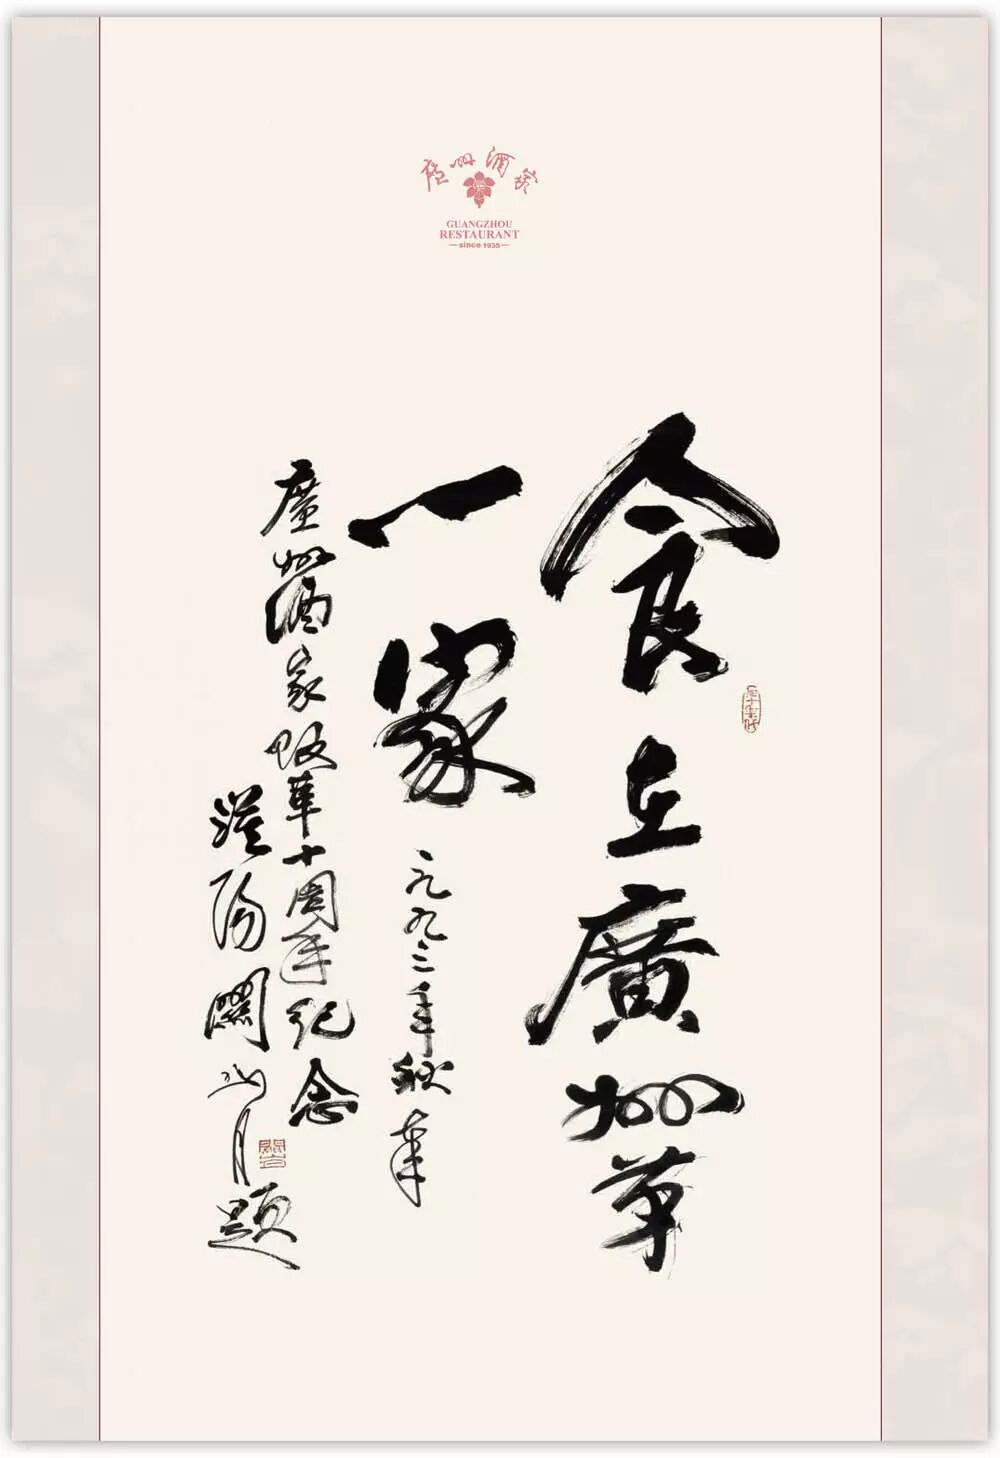 廣州酒家
GUANGZHOU
RESTAURANT
since 1935
食在廣州第
一家 一九九三年秋奉
廣州酒家改革十周年紀念
漠陽關山月題